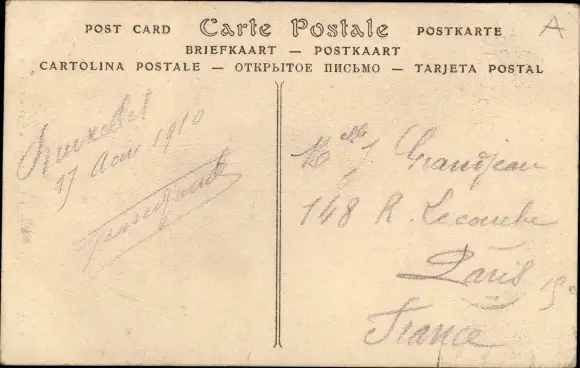 A
POST CARD Carte Postale POSTKARTE
BRIEFKAART — POSTKAART
CARTOLINA POSTALE — ОТКРЫТОЕ ПИСЬМО — TARJETA POSTAL
Bruxelles
17 Aout 1910
Mlle J Grandjean
148 R. Lecourbe
Paris 15e
France